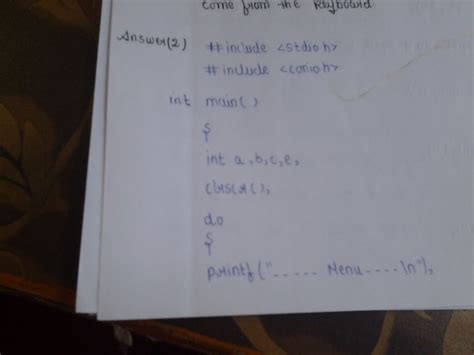 come from the keyboard
Answer(2) # include <stdio h>
# include <conio h>
int main( )
{
int a, b, c, e,
clrscr( ),
do
{
printf ("----- Menu ----\n"),